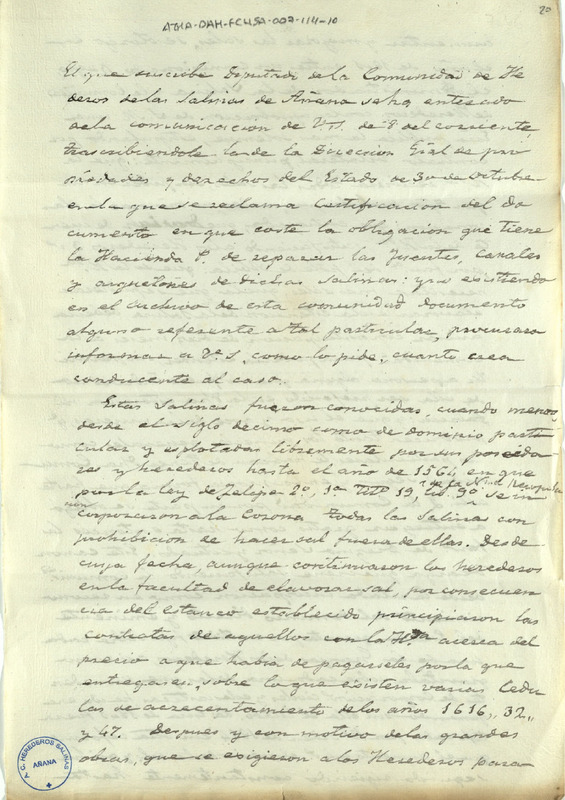 ATHA-DAH-FCHSA-007-114-10
20
El que suscribe Diputado de la Comunidad de He
rederos de las Salinas de Añana se ha enterado
de la comunicacion de V.S. de 8 del corriente
trascribiendole la de la Direccion Gral de pro
piedades y derechos del Estado de 30 de Octubre
en la que se reclama Certificacion del do
cumento en que conste la obligacion que tiene
la Hacienda P. de reparar las fuentes, canales
y arquetones de dichas Salinas: y no existiendo
en el archivo de esta comunidad documento
alguno referente a tal particular, procurara
informar a V. S, como lo pide, cuanto crea
conducente al caso.
Estas Salinas fueron conocidas, cuando menos,
desde el siglo decimo como de dominio parti
cular y esplotadas libremente por sus poseedo
res y herederos hasta el año de 1564 en que
por la ley de Felipe 2º, 1ª titº 19, lib. 9º de la Nª Recopila
cion se in
corporaron a la Corona todas las Salinas con
prohibicion de hacer sal fuera de ellas. Desde
cuya fecha, aunque continuaron los herederos
en la facultad de elavorar sal, por consecuen
cia del estanco establecido principiaron las
contratas de aquellos con la Hda acerca del
precio a que habia de pagarseles por la que
entregasen, sobre lo que existen varias Cedu
las de acrecentamiento de los años 1616,, 32,,
y 47. Despues y con motivo de las grandes
obras, que se exigieron a los Herederos para
A.C. HEREDEROS SALINAS
AÑANA